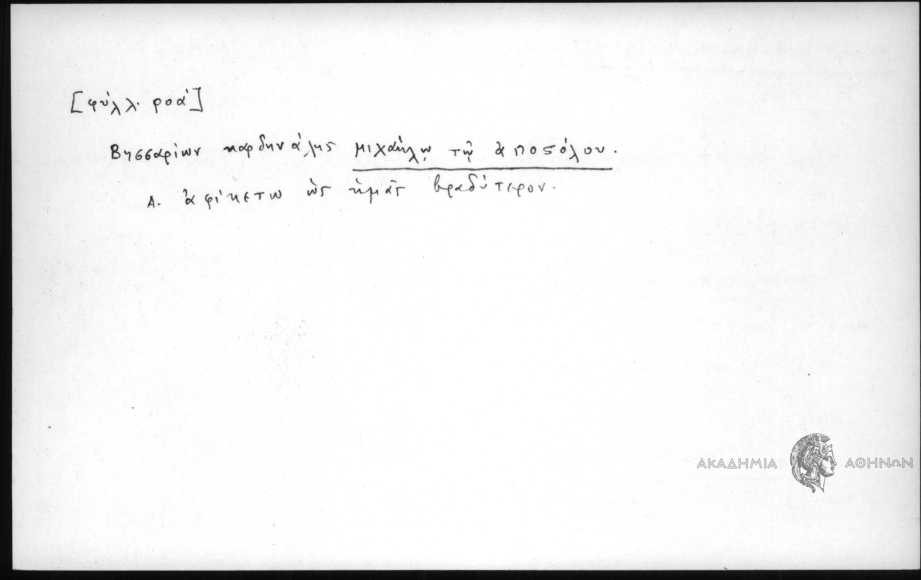 [φύλλ. ροά]
Βησσαρίων καρδηνάλης μιχαήλῳ τῷ ἀποϛόλου.
Α. ἀφίκετω ὡς ἡμᾶς βραδύτερον.
ΑΚΑΔΗΜΙΑ ΑΘΗΝΩΝ